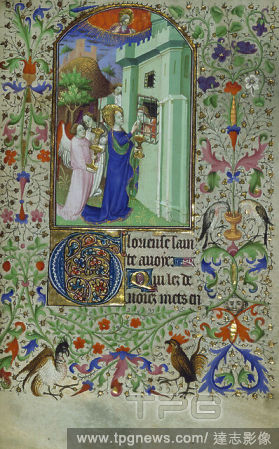 Glorieuse sain
te avoye
Qui les de
voies mets en
TPG
www.tpgnews.com/達志影像